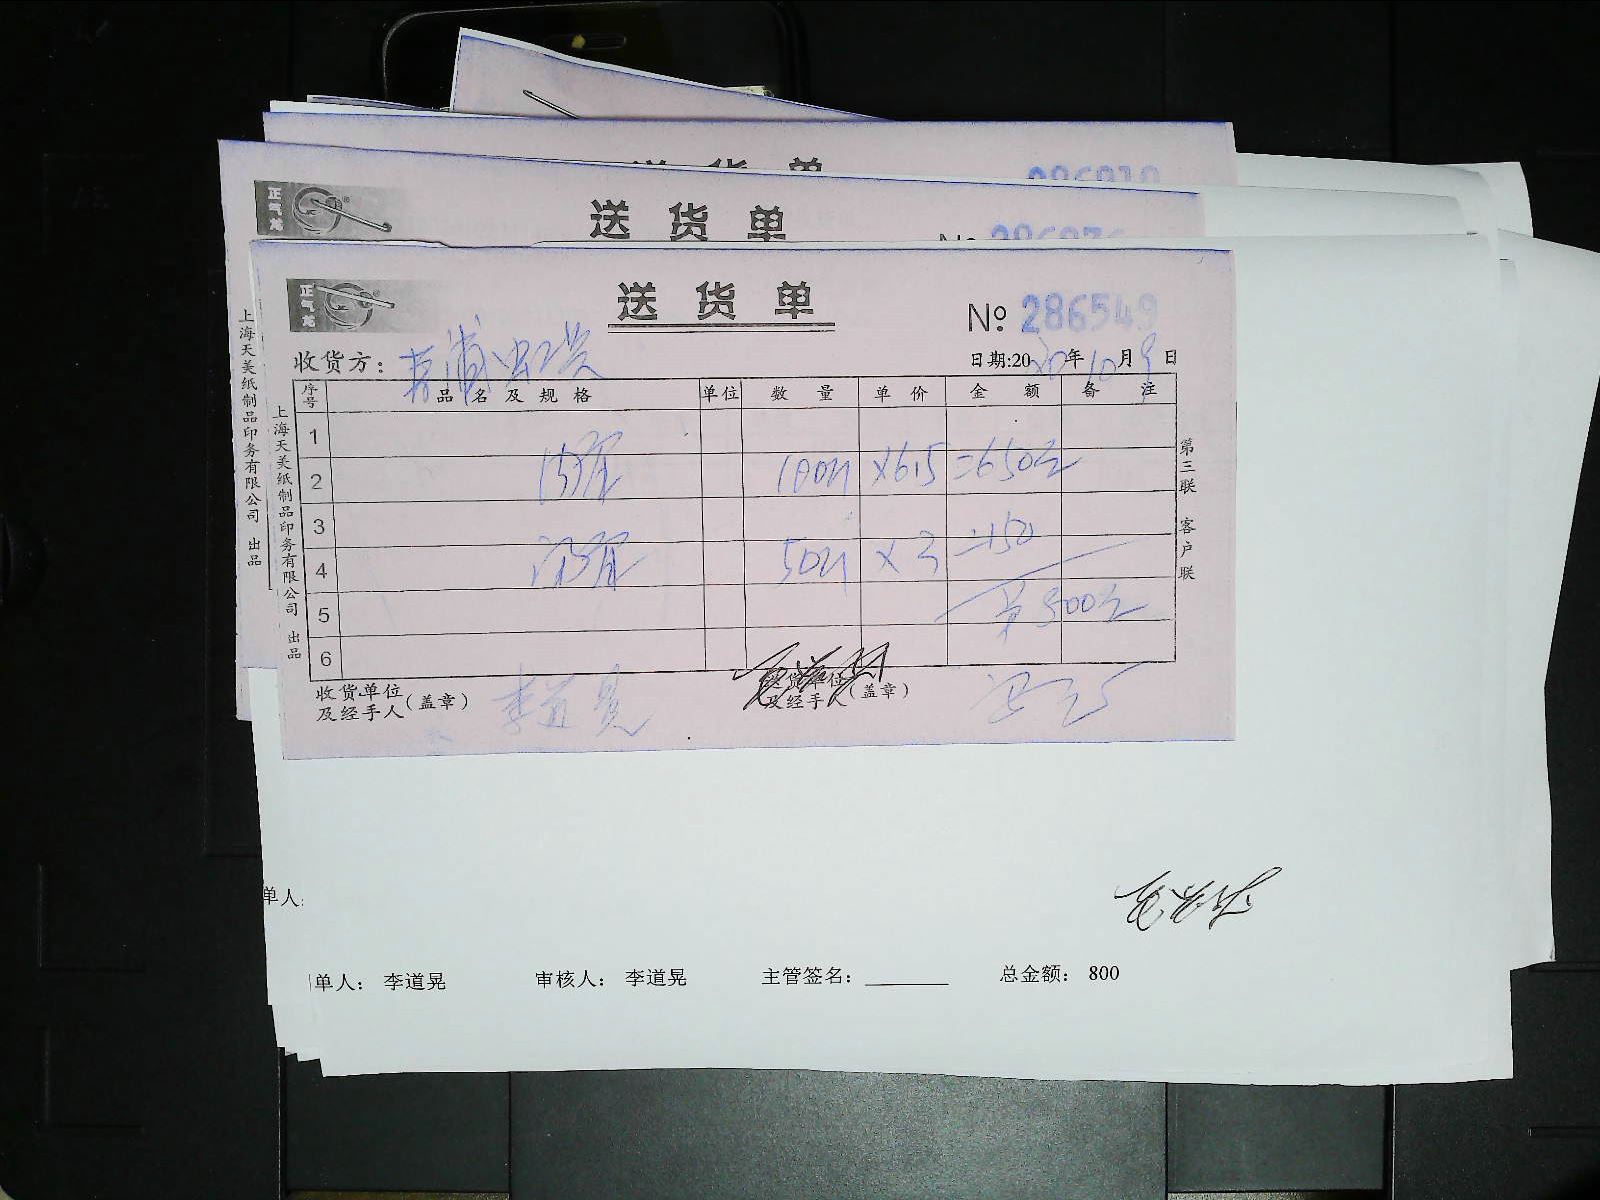 送 货 单
正气龙
送 货 单
上海天美纸制品印务有限公司 出品
正气龙
送 货 单
No 286549
收货方：
日期:2020年10月9日
序号 品名及规格 单位 数量 单价 金额 备注
1
2 100 ×6.5 =650元
3
4 50 ×3 =150
5 800元
6
第三联 客户联
上海天美纸制品印务有限公司 出品
收货单位及经手人（盖章） 李道晃 送货单位及经手人（盖章）
单人:
单人： 李道晃 审核人： 李道晃 主管签名： 总金额： 800